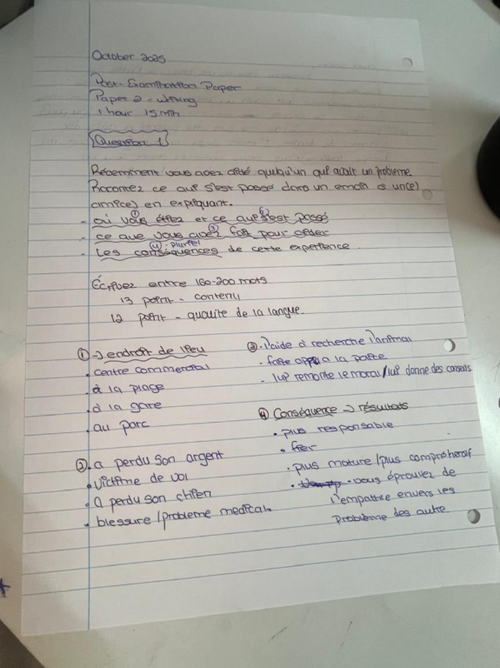 October 2025
Post-Examination Paper
Paper 2 - writing
1 hour 15 min
Question 1
Récemment vous avez aidé quelqu'un qui avait un problème
Racontez ce qui s'est passé dans un email à un(e)
ami(e) en expliquant.
- où vous étiez et ce qui s'est passé
- ce que vous avez fait pour aider
- les conséquences de cette expérience
④ - pluriel
Écrivez entre 160-200 mots
13 point - contenu
12 point - qualité de la langue.
① → endroit de lieu
• centre commercial
• à la plage
• à la gare
• au parc
② • a perdu son argent
• victime de vol
• a perdu son chien
• blessure / problème medical
③ • l'aide à recherche l'animal
• faire appel a la police
• lui remonte le moral / lui donne des conseils
④ Conséquence → résultats
• plus responsable
• fier
• plus mature / plus compréhensif
• vous éprouvez de
l'empathie envers les
problème des autre